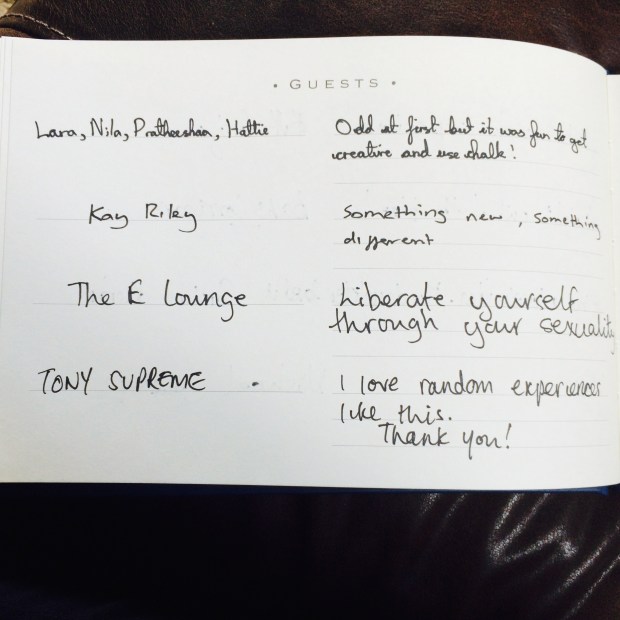 • GUESTS •
Lara, Nila, Pratheeshan, Hattie
Odd at first but it was fun to get
creative and use chalk!
Kay Riley
Something new, something
different
The E lounge
Liberate yourself
through your sexuality
TONY SUPREME
I love random experiences
like this.
Thank you!